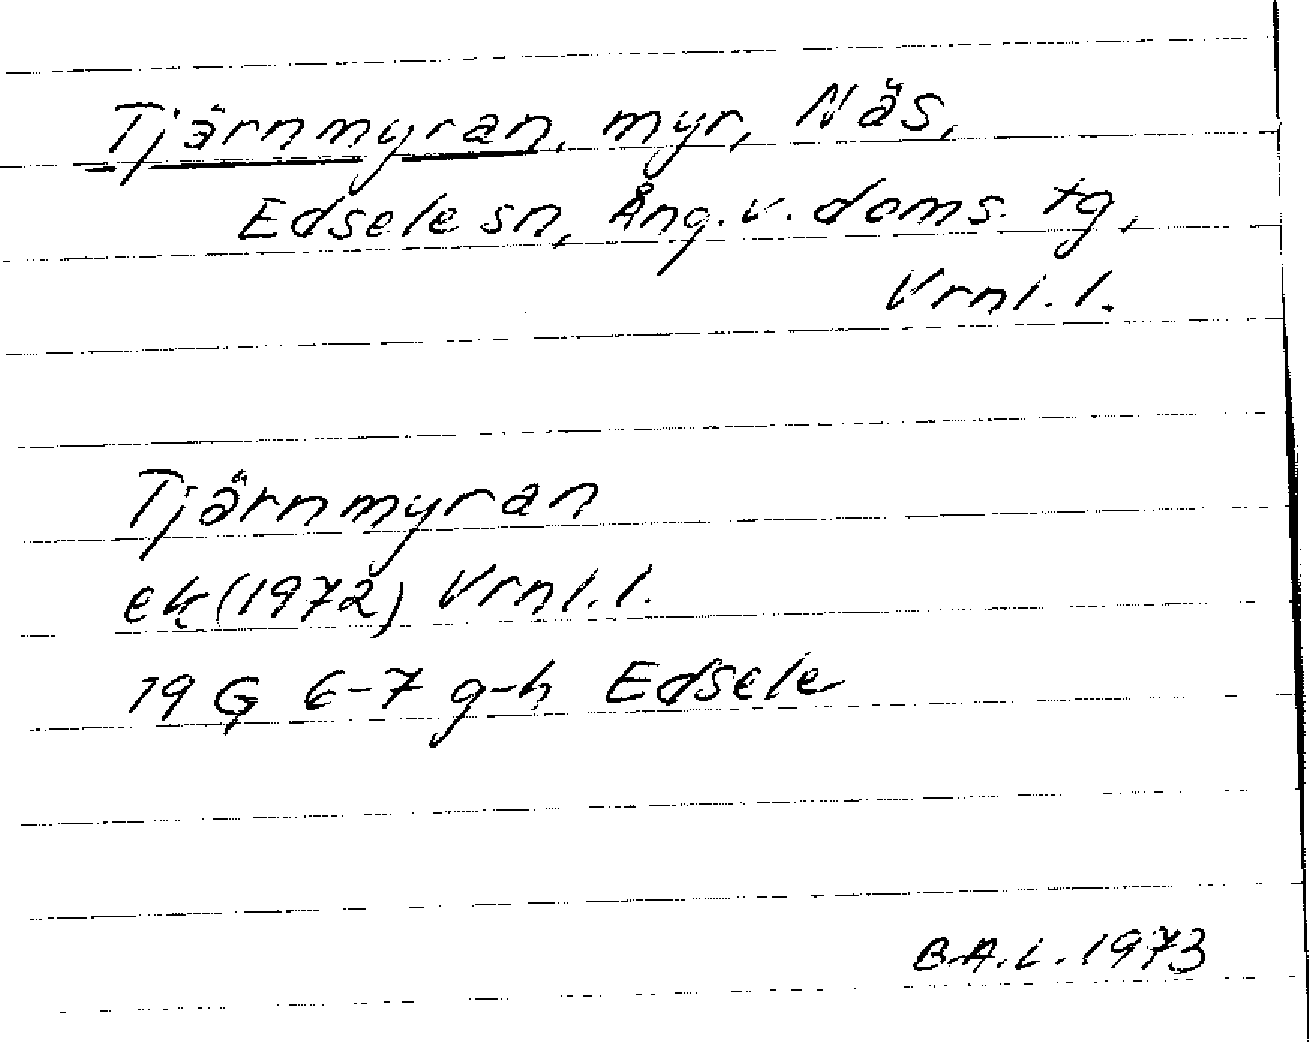 Tjärnmyran, myr, Näs,
Edsele sn, Ång.v. doms. tg,
Vrnl.l.
Tjärnmyran
ek (1972) Vrnl.l.
19 G 6-7 g-h Edsele
B.A.L. 1973